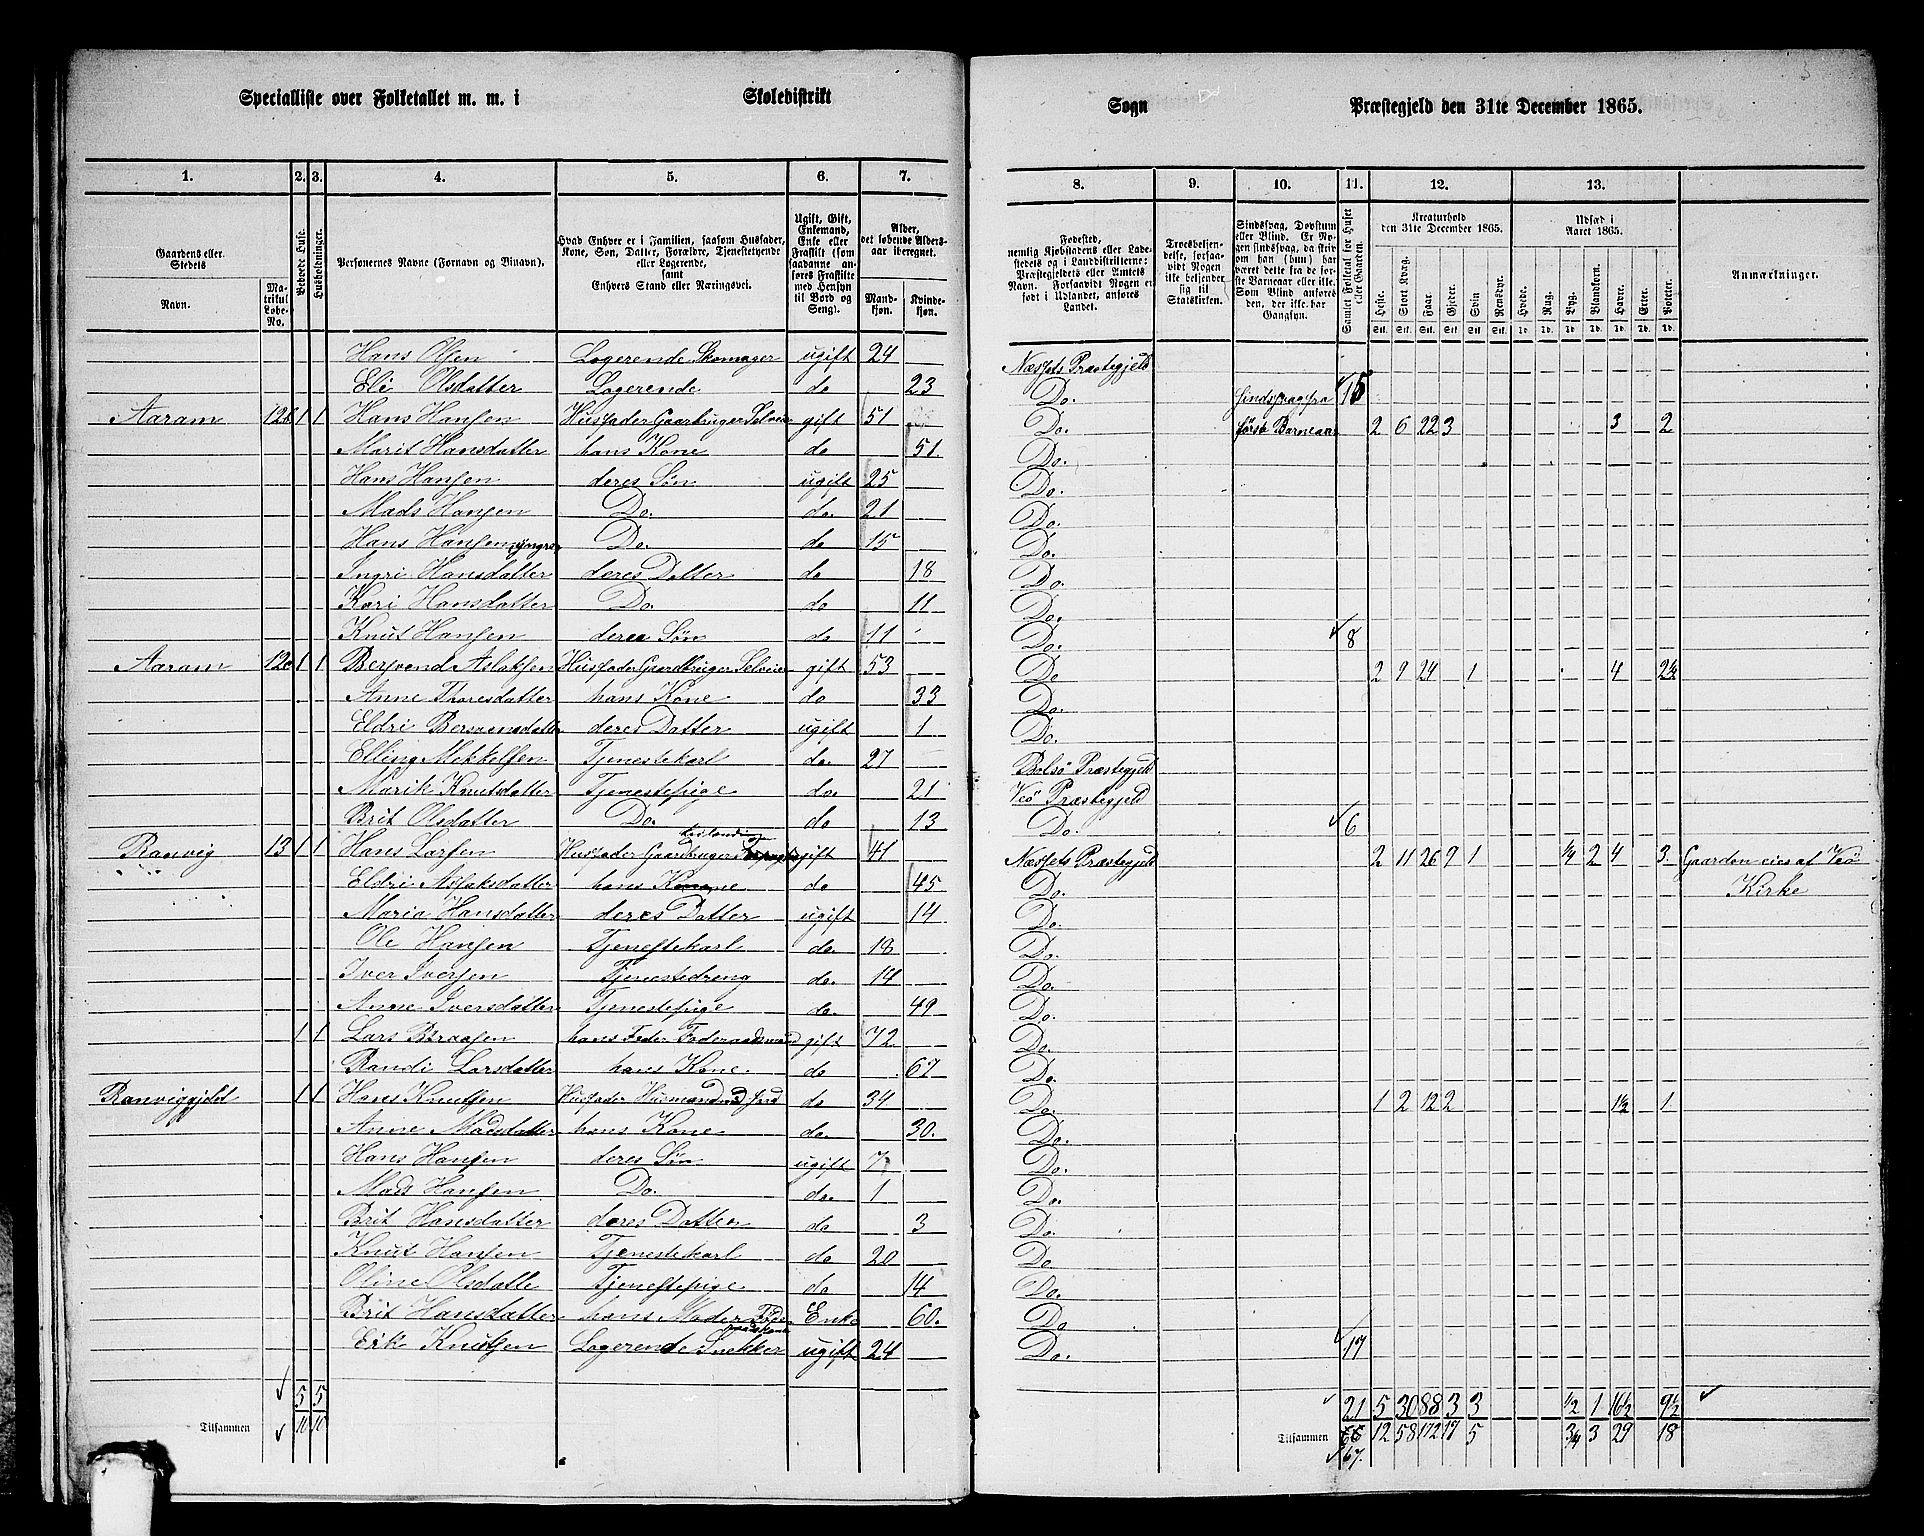 Specialliste over Folketallet m. m. i Skoledistrikt Sogn Præstegjeld den 31te December 1865.
1. 2. 3. 4. 5. 6. 7. 8. 9. 10. 11. 12. 13.
Gaardens eller Stedets Navn. Matrikul Løbe-No. Beboede Huse. Husholdninger. Personernes Navne (Fornavn og Tilnavn).
Hvad Enhver er i Familien, saasom Husfader, Kone, Søn, Datter, Forældre, Tjenestetyende eller Logerende, samt Enhvers Stand eller Næringsvei.
Ugift, Gift, Enkemand, Enke eller Fraskilt (som saadanne anføres Fraskilte med Hensyn til Bord og Seng).
Alder, det løbende Aldersaar iberegnet. Mandkjøn. Kvindekjøn.
Fødested, nemlig Kjøbstadens eller Ladestedets og i Landdistrikterne: Præstegjeldets eller Amtets Navn. Forsaavidt Nogen er født i Udlandet, anføres Landet.
Troesbekjendelse, forsaavidt Nogen ikke bekjender sig til Statskirken.
Sindssvag, Døvstum eller Blind. Er Nogen sindssvag, da skrives om han (hun) har været dette fra de første Barneaar eller ikke. Som Blind anføres den, der ikke har Gangsyn.
Samlet Folketal for Huset eller Gaarden.
Kreaturhold den 31te December 1865. Heste. Stort Kvæg. Faar. Gjeder. Svin Rensdyr.
Udsæd i Aaret 1865. Hvede. Rug. Byg. Blandkorn. Havre. Erter. Poteter.
Anmærkninger.
Hans Olsen Logerende Skomager ugift 24 Næssets Præstegjeld
Eli Olsdatter Logerende do 23 Do. Sindssvag fra 15
Aaram 12b 1 1 Hans Hansen Husfader Gaardbruger Selveier gift 51 Do. første Barneaar 2 6 22 3 3 2
Marit Hansdatter hans Kone do 51. Do.
Hans Hansen deres Søn ugift 25 Do.
Mads Hansen Do. do. 21 Do.
Hans Hansen yngre Do. do 15 Do.
Ingri Hansdatter deres Datter do 18 Do.
Kari Hansdatter Do. do 11 Do.
Knut Hansen deres Søn do 11 Do. 8
Aaram 12c 1 1 Bersvend Aslaksen Husfader Gaardbruger Selveier gift 53 Do 2 9 24 1 4 2½
Anne Thoresdatter hans Kone do 33 Do.
Eldri Bersvensdatter deres Datter ugift 1 Do.
Elling Mekkelsen Tjenestekarl do. 27 Bolsø Præstegjeld
Marit Knutsdatter Tjenestepige do. 21 Veø Præstegjeld
Brit Olsdatter Do. do 13 Do. 6
Ranvig 13 1 1 Hans Larsen Husfader Gaardbruger gift 41 Næssets Præstegjeld 2 11 26 7 1 ¼ 2 4 3. Gaarden eies af Veø
Eldri Aslaksdatter hans Kone do 45 Do. Kirke
Maria Hansdatter deres Datter ugift 14 Do.
Ole Hansen Tjenestekarl do. 18 Do.
Iver Iversen Tjenestedreng do. 14 Do.
Anne Iversdatter Tjenestepige do. 49 Do.
1 1 Lars Braasen hans Fader Føderaadsmand gift 72 Do.
Randi Larsdatter hans Kone. do 67 Do.
Ranviggjeld 1 1 Hans Knutsen Husfader Husmand med Jord do 34 Do. 1 2 12 2 1½ 1
Anne Madsdatter hans Kone do. 30. Do.
Hans Hansen deres Søn ugift 7 Do.
Mads Hansen Do. do. 1 Do.
Brit Hansdatter deres Datter do 3 Do.
Knut Hansen Tjenestekarl do 20 Do
Oline Olsdatte Tjenestepige do 14 Do.
Brit Hansdatter hans Moder Enke 60. Do
Erik Knutsen Logerende Snekker ugift 24 Do. 17
5 5 21 5 30 88 3 3 ½ 1 16½ 9½
Tilsammen 10 10 Tilsammen 12 58 172 17 5 ¾ 3 29 18
67.